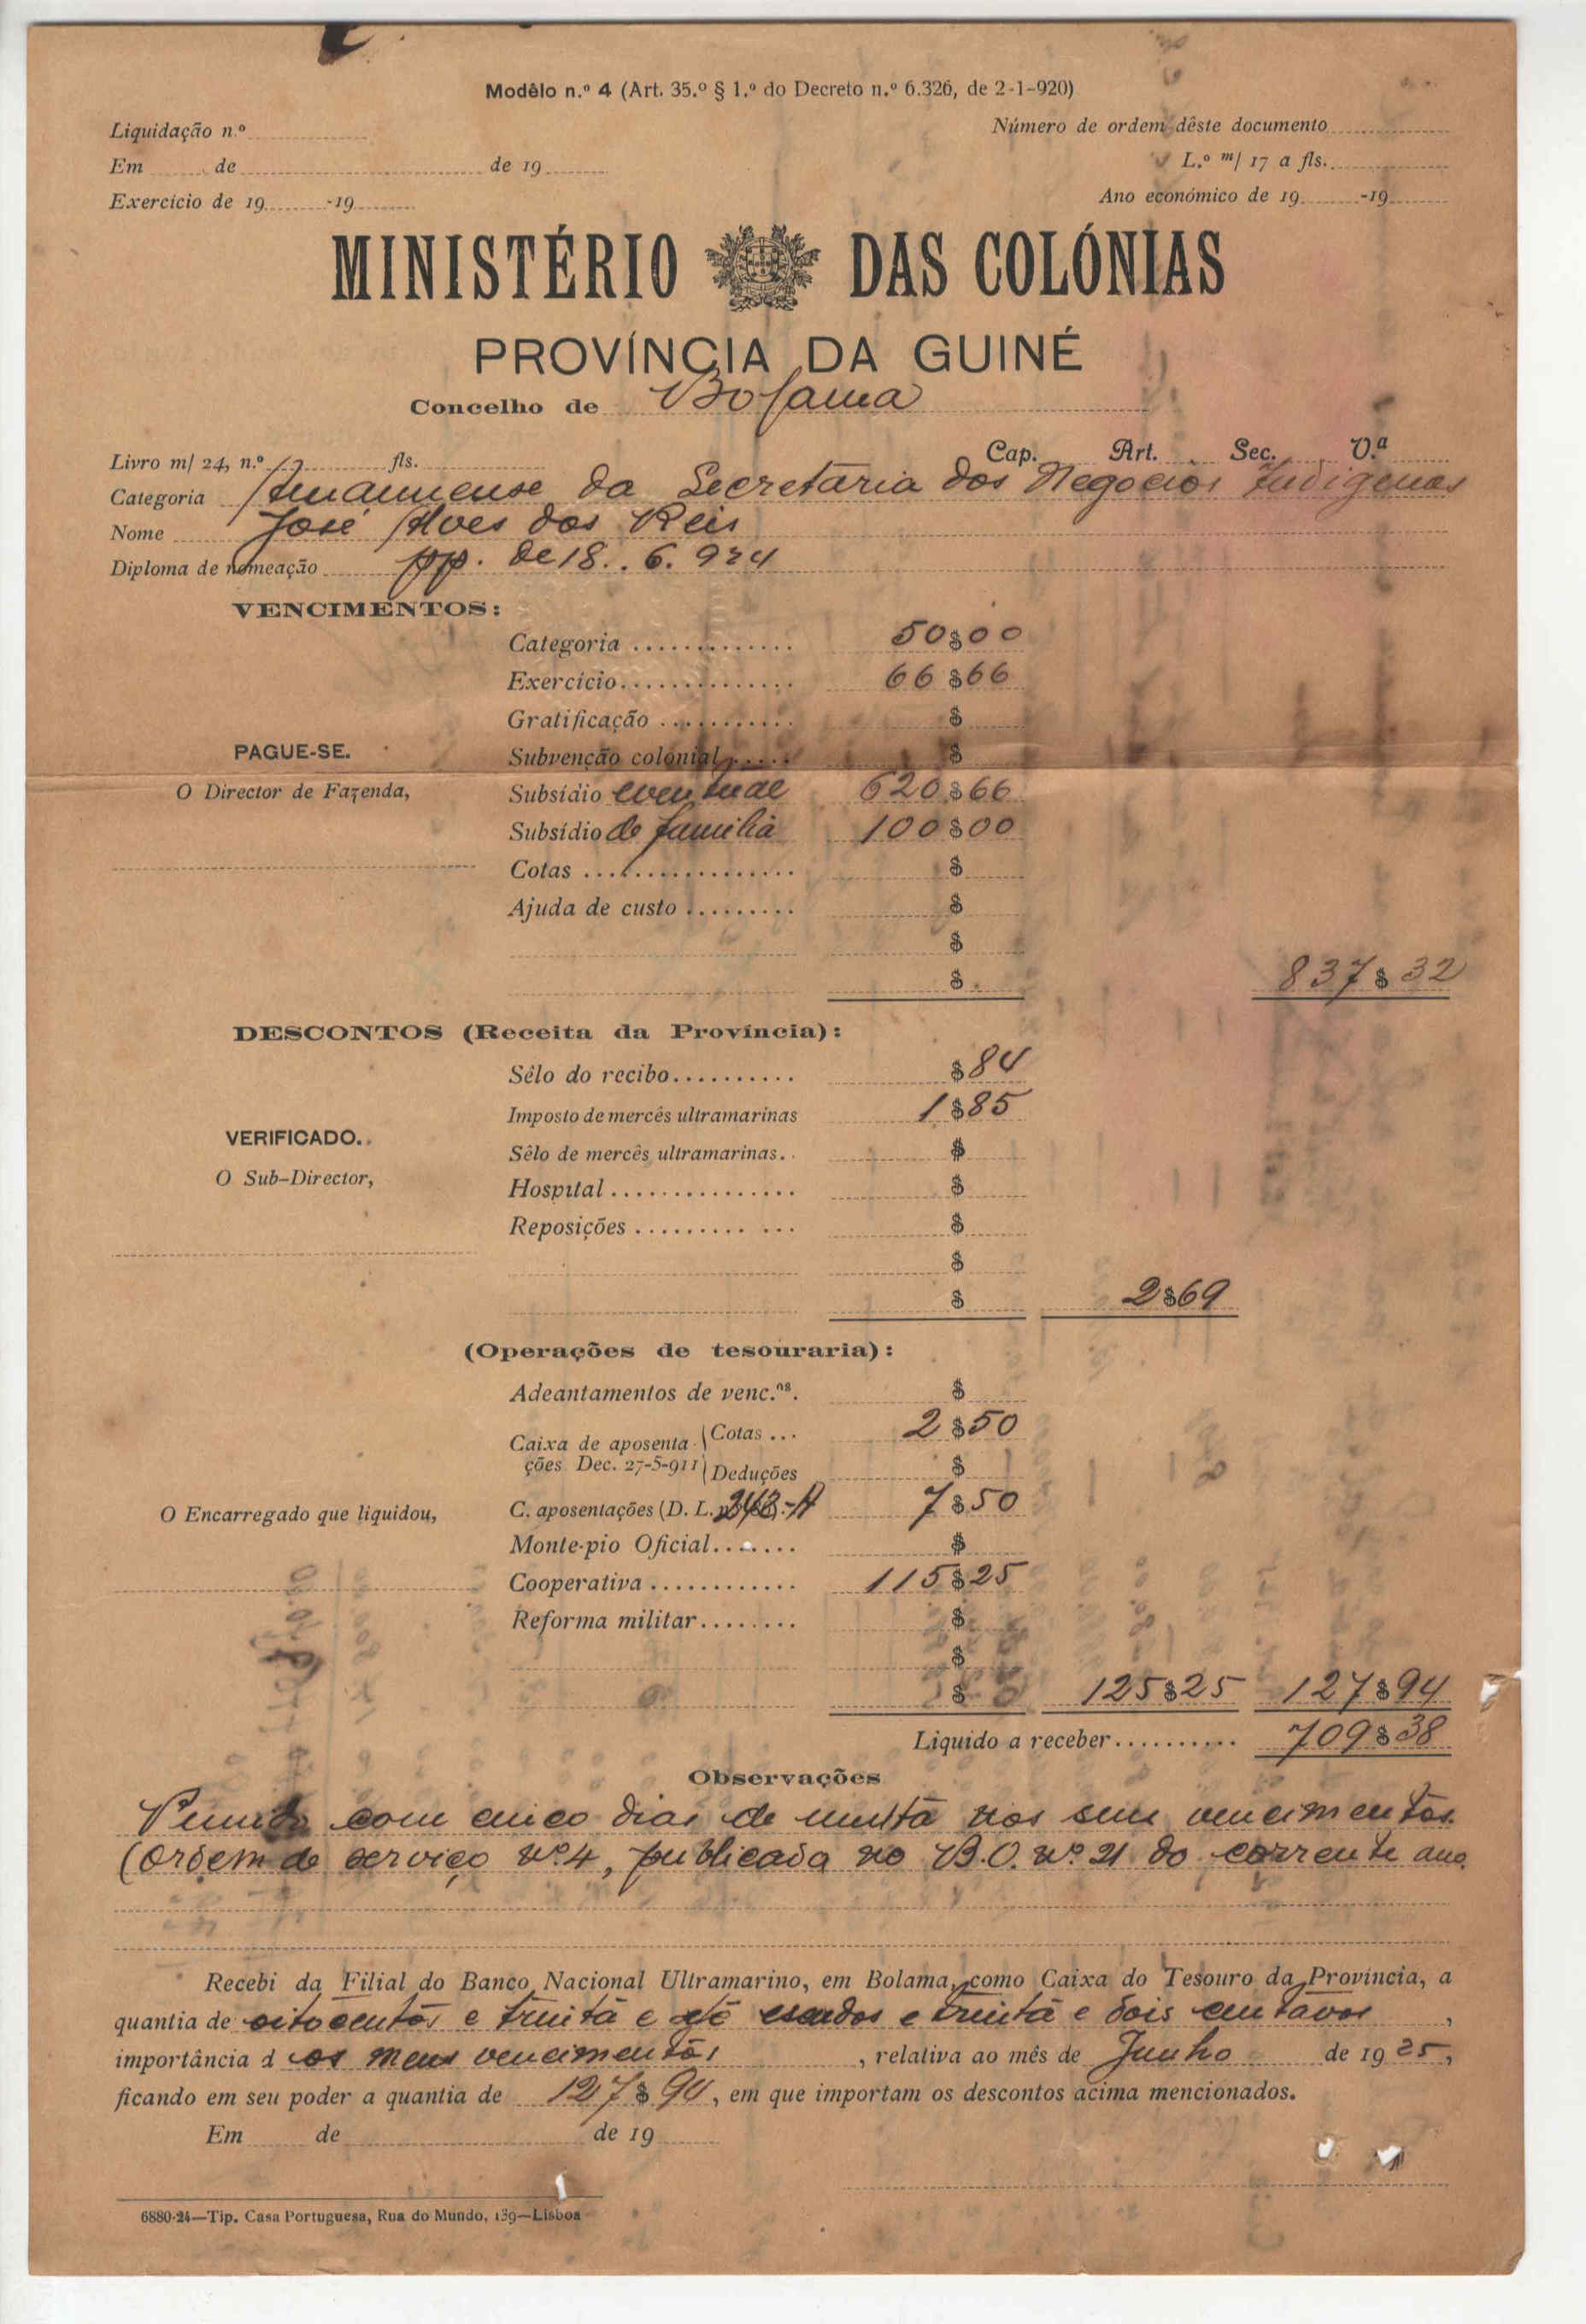 Modêlo n.º 4 (Art. 35.º § 1.º do Decreto n.º 6.326, de 2-1-920)
Liquidação n.º
Número de ordem dêste documento
Em de de 19
L.º m/ 17 a fls.
Exercício de 19 -19
Ano económico de 19 -19
MINISTÉRIO DAS COLÓNIAS
PROVÍNCIA DA GUINÉ
Concelho de Bolama
Livro m/ 24, n.º fls. Cap. Art. Sec. V.ª
Categoria Amanuense da Secretaria dos Negocios Indigenas
Nome José Alves dos Reis
Diploma de nomeação pp. de 18.. 6. 924
VENCIMENTOS:
Categoria 50$00
Exercício 66$66
Gratificação $
PAGUE-SE. Subvenção colonial $
O Director de Fazenda, Subsídio eventual 620$66
Subsídio de familia 100$00
Cotas $
Ajuda de custo $
$
$ 837$32
DESCONTOS (Receita da Província):
Sêlo do recibo $84
Imposto de mercês ultramarinas 1$85
VERIFICADO. Sêlo de mercês ultramarinas $
O Sub-Director, Hospital $
Reposições $
$
$ 2$69
(Operações de tesouraria):
Adeantamentos de venc.ᵒˢ. $
Caixa de aposentações Dec. 27-5-911 Cotas ... 2$50
Deduções $
O Encarregado que liquidou, C. aposentações (D. L. 243-A 7$50
Monte-pio Oficial $
Cooperativa 115$25
Reforma militar $
$
$ 125$25 127$94
Liquido a receber 709$38
Observações
Punido com cinco dias de multa nos seus vencimentos.
(Ordem de serviço nº. 4, publicada no B.O. nº. 21 do corrente ano.
Recebi da Filial do Banco Nacional Ultramarino, em Bolama, como Caixa do Tesouro da Província, a
quantia de oitocentos e trinta e sete escudos e trinta e dois centavos ,
importância d os meus vencimentos , relativa ao mês de Junho de 1925,
ficando em seu poder a quantia de 127$94, em que importam os descontos acima mencionados.
Em de de 19
6880-24—Tip. Casa Portuguesa, Rua do Mundo, 139—Lisboa